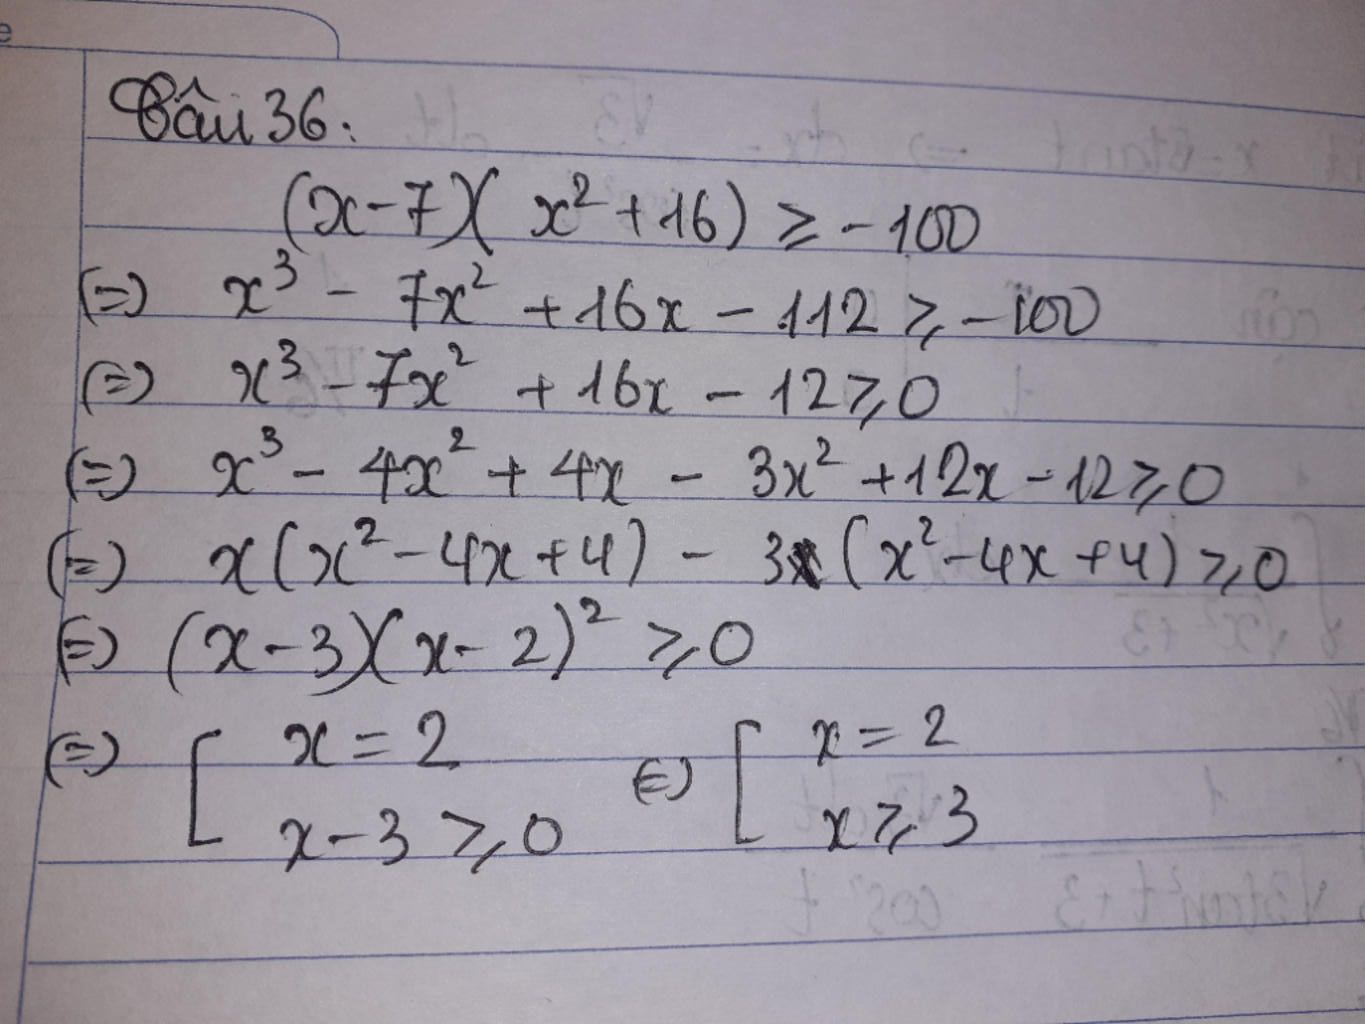 Câu 36:
(x-7)(x²+16) ≥ -100
(=) x³ - 7x² + 16x - 112 ≥ -100
(=) x³ - 7x² + 16x - 12 ≥ 0
(=) x³ - 4x² + 4x - 3x² + 12x - 12 ≥ 0
(=) x(x² - 4x + 4) - 3(x² - 4x + 4) ≥ 0
(=) (x-3)(x-2)² ≥ 0
(=) [ x = 2 (=) [ x = 2
x - 3 ≥ 0 x ≥ 3